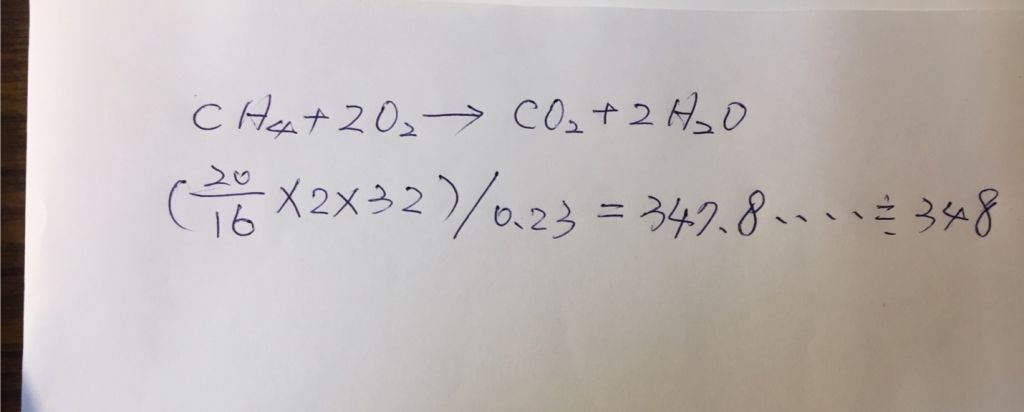 CH₄+2O₂→CO₂+2H₂O
(20/16×2×32)/0.23=347.8....≒348